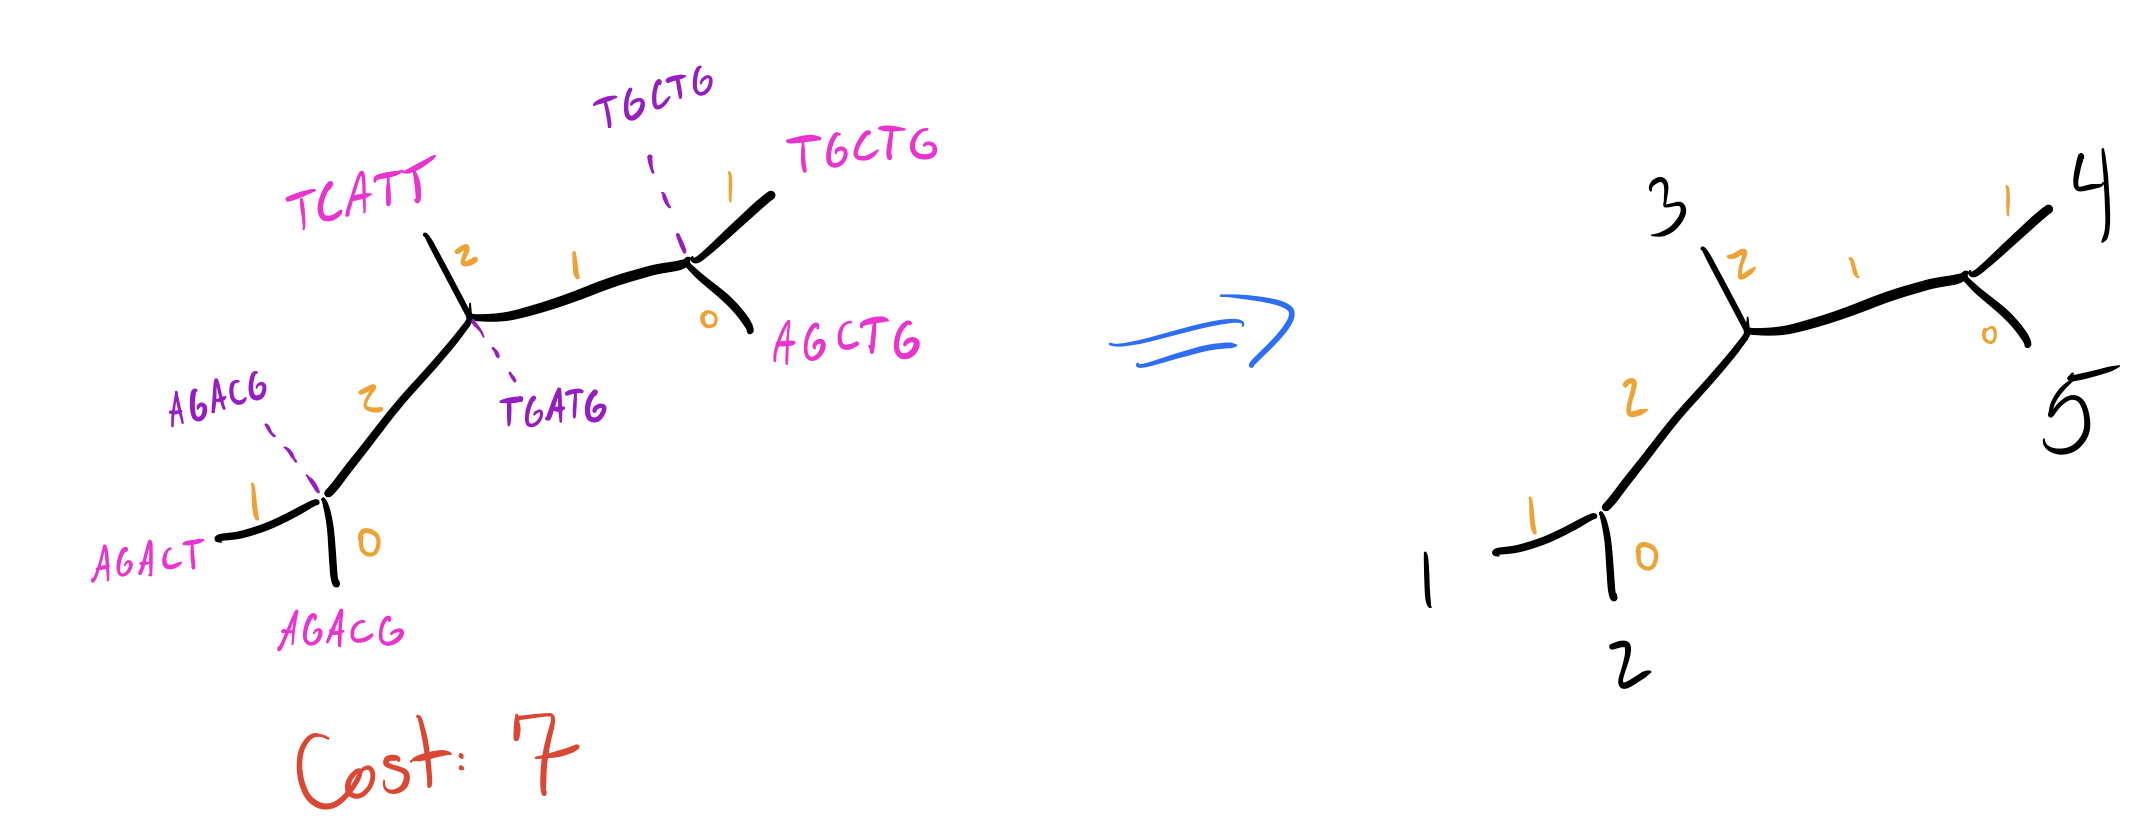 TGCTG
TGCTG
1
TCATT
2
1
0
AGCTG
AGACG
2
TGATG
1
AGACT
0
AGACG
Cost: 7
3
2
1
1
4
0
5
2
1
1
0
2